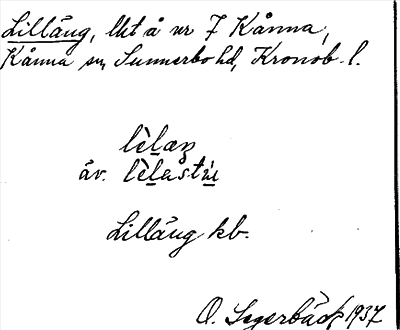 Lilläng, lht å nr 7 Kånna,
Kånna sn, Sunnerbo hd, Kronob. l.
lèlaŋ
äv. lèlastù
Lilläng kb.
O. Segerbäck 1937